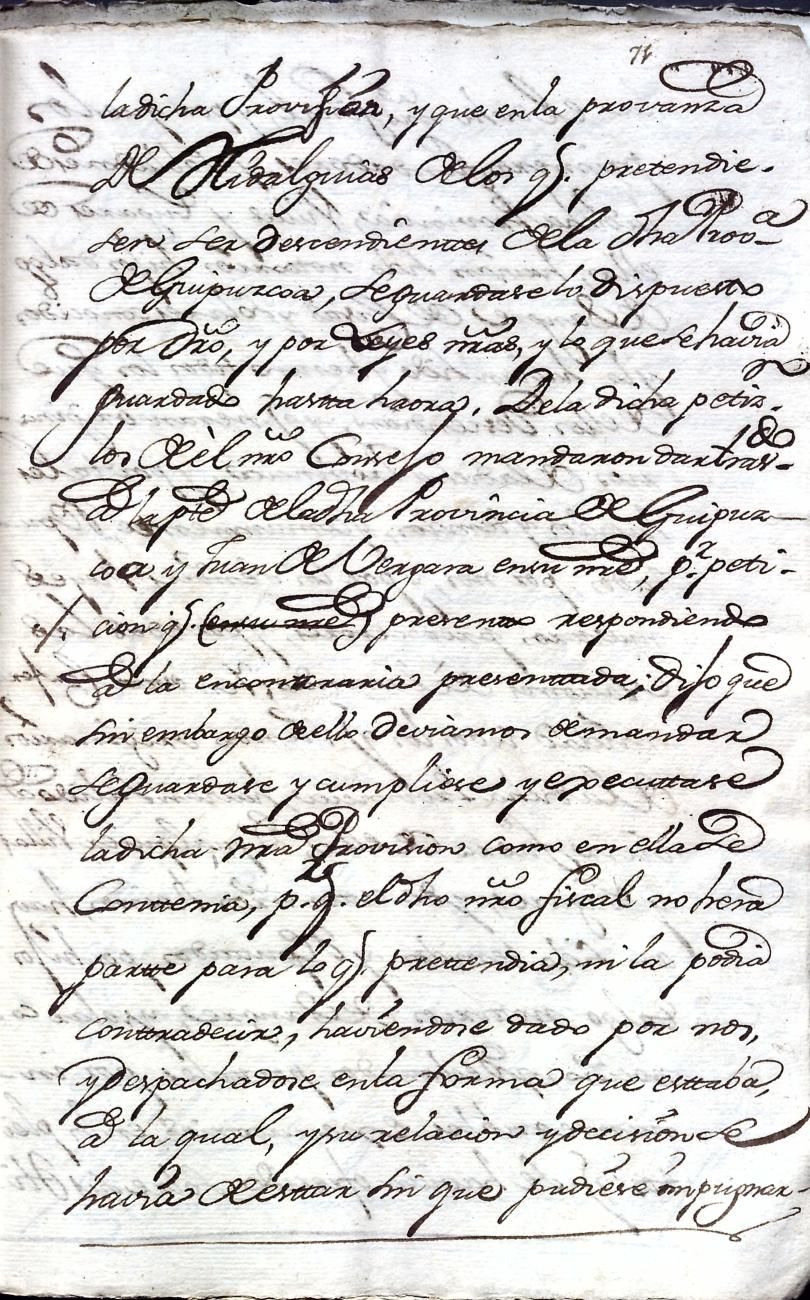 71
ladicha Provision, y que enla provanza
de Hidalguias de los q.e pretendie-
sen ser descendienttes de la dha Prov.a
de Guipuzcoa, se guardase lo dispuestto
por dro, y por Leyes nras, y lo que se havia
guardado hastta haora. De la dicha petiz.on
los de èl nro Consejo mandaron dar tras-do
â la pte de la dha Provincia de Guipuz-
coa y Juan de Vergara en su nre, p.r peti-
cion q.e (en su nre) presentto respondiendo
â la encontraria presenttada; dijo que
sin embargo de ello deviamos de mandar
se guardase y cumpliese y executtase
ladicha nra Provision como en ella se
Conttenia, p.r q.e el dho nro fiscal no hera
partte para lo q.e prettendia, ni la podia
conttradecir, haviendose dado por nos,
y despachadose en la forma que esttaba,
â la qual, y su relacion y decision se
havia de esttar sin que pudiese impugnar-